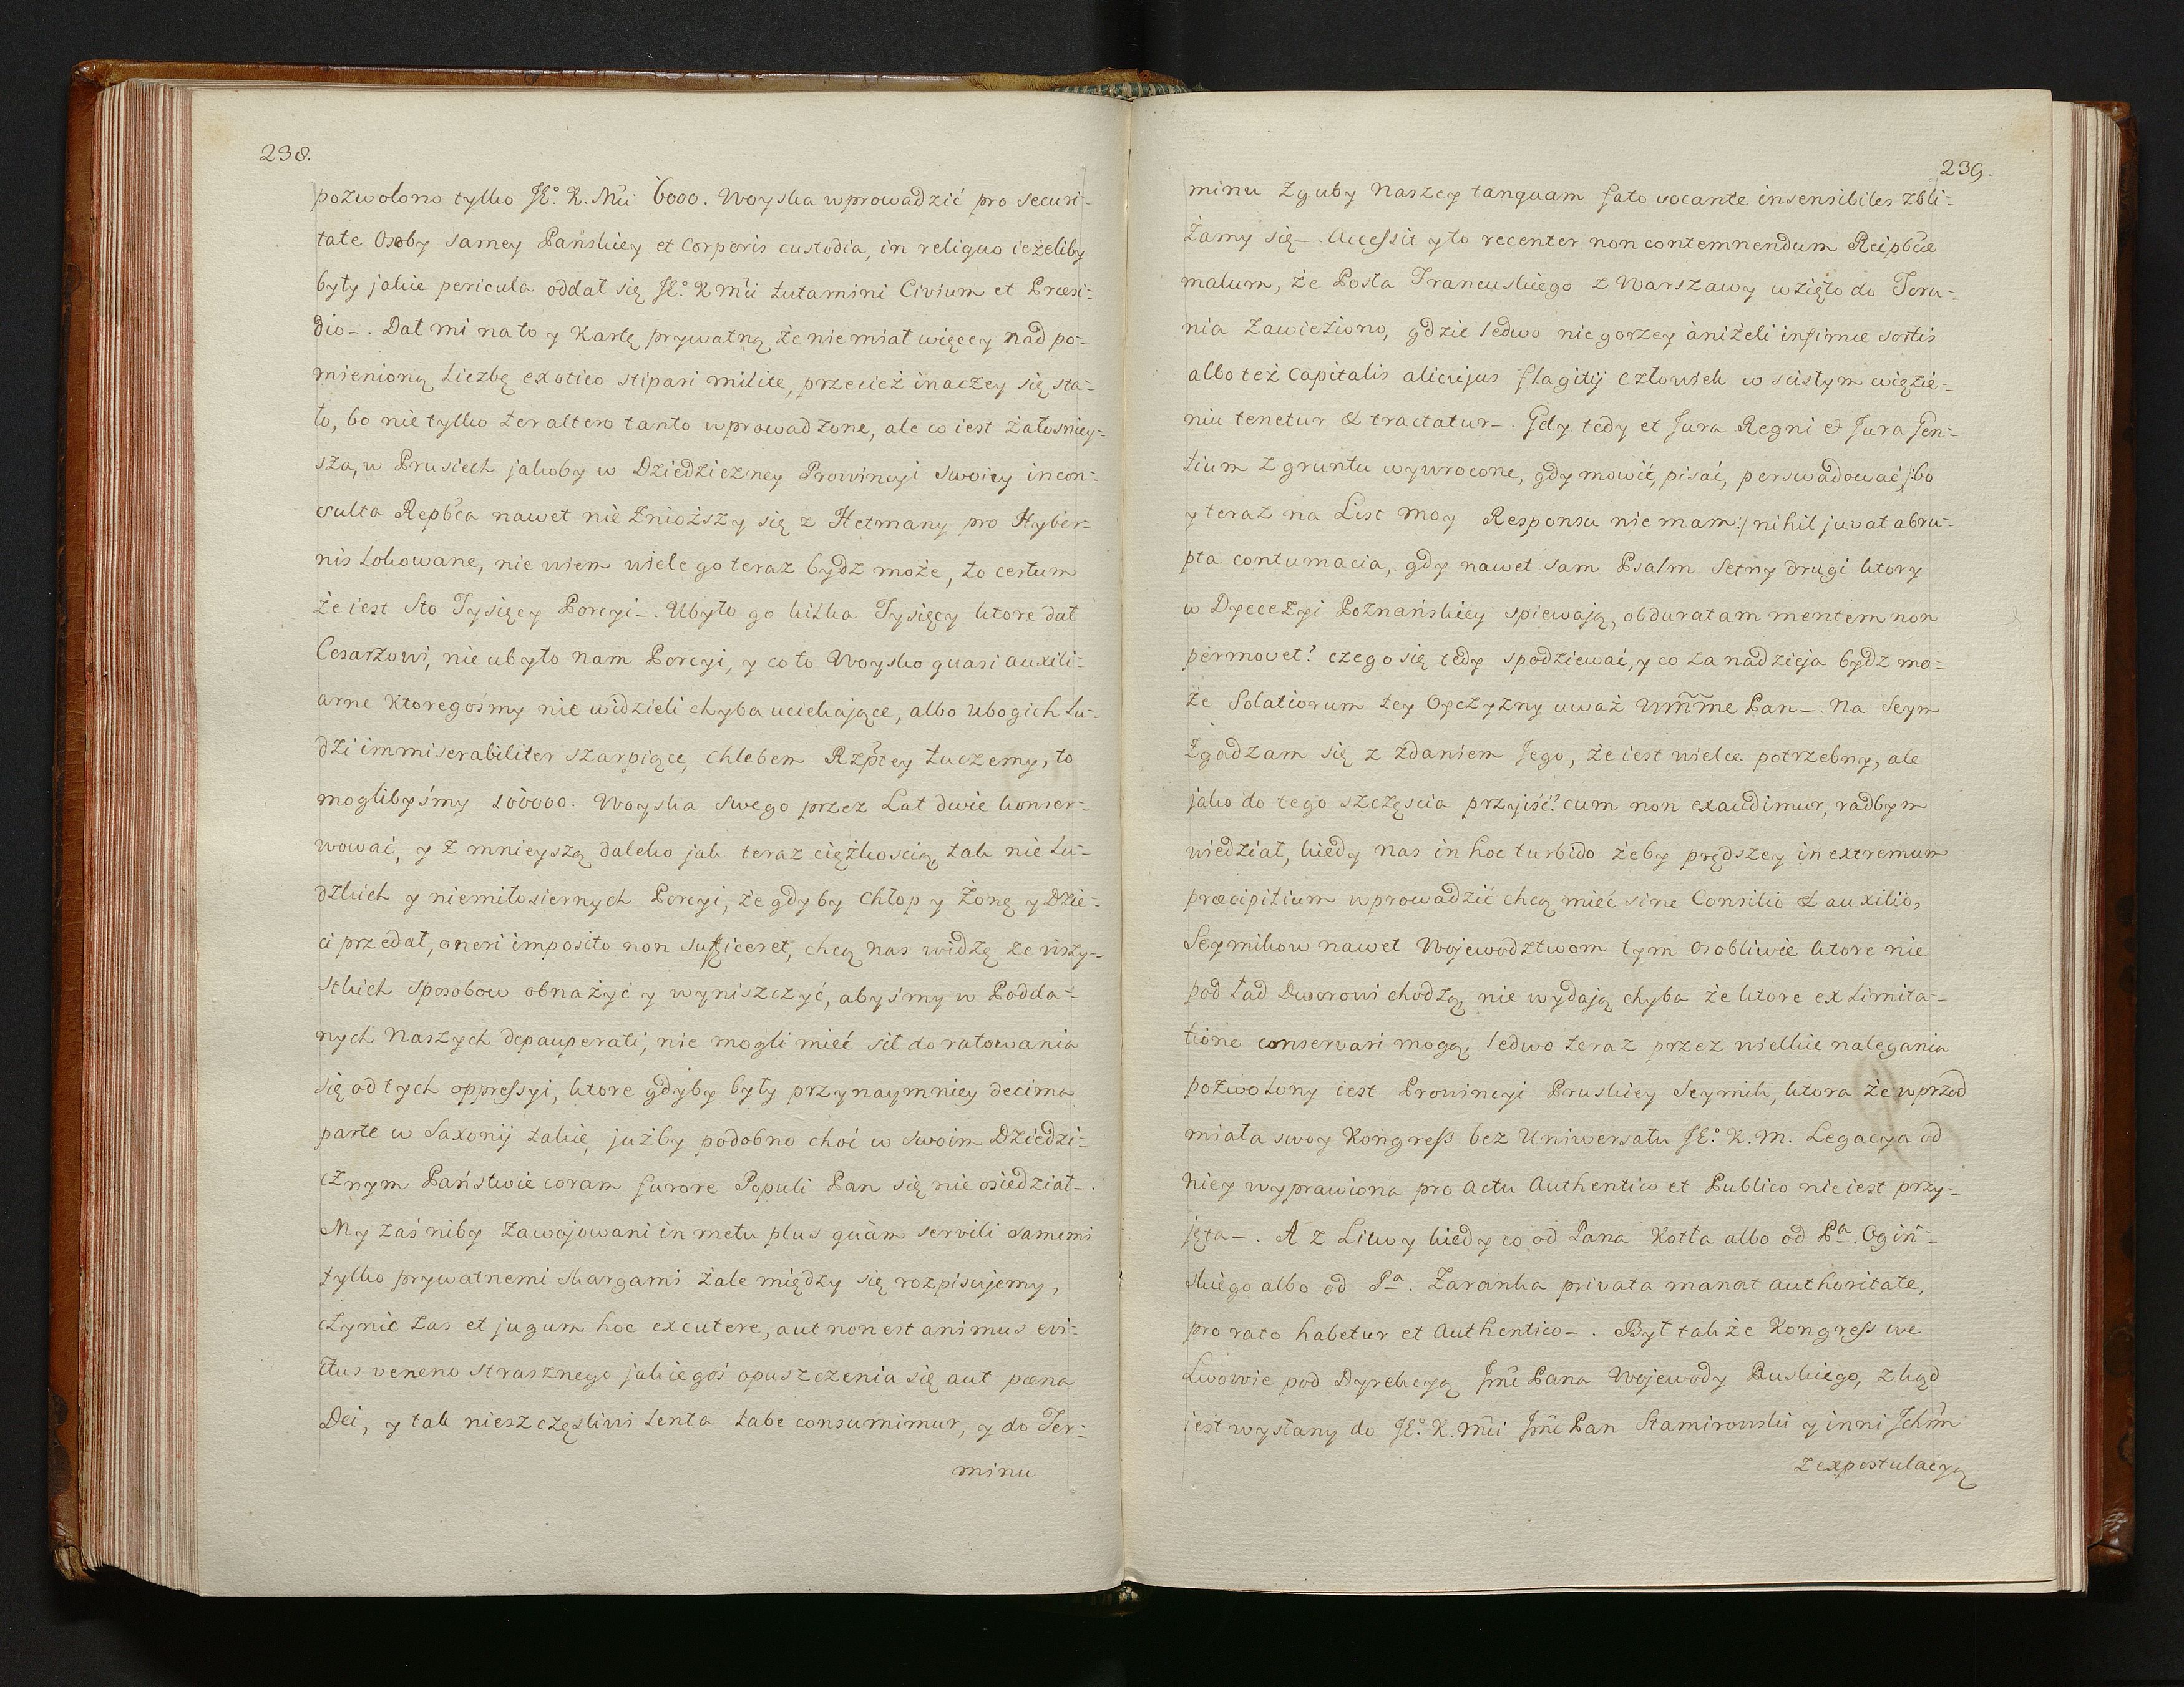 238.
pozwolono tylko JE.º K. Mci 6000. Woyska wprowadzić pro securi-
tate Osoby samey Pańskiey et Corporis custodia, in reliquo ieżeliby
były jakie pericula oddał się JE.º K Mci tutamini Civium et Præsi-
dio-. Dał mi na to y Kartę prywatną że nie miał więcey nad po-
mienioną liczbę exotico stipari milite, przecież inaczey się sta-
ło, bo nie tylko ter altero tanto wprowadzone, ale co iest żałosniey-
sza, w Prusiech jakoby w Dziedziczney Prowincyi swoiey incon-
sulta Repbca nawet nie znioższy się z Hetmany pro Hyber-
nis lokowane, nie wiem wiele go teraz bydz może, to certum
że iest Sto Tysięcy Porcyi-. Ubyło go kilka Tysięcy ktore dał
Cesarzowi, nie ubyło nam Porcyi, y co to Woysko quasi auxili-
arne ktoregośmy nie widzieli chyba uciekające, albo ubogich lu-
dzi immiserabiliter szarpiące, chlebem Rzptey tuczemy, to
moglibyśmy 100000. Woyska swego przez Lat dwie konser-
wować, y z mnieyszą daleko jak teraz ciężkoscią tak nie lu-
dzkich y niemiłosiernych Porcyi, że gdyby Chłop y żonę y Dzie-
ci przedał, oneri imposito non sufficeret, chcą nas widzę ze wszy-
stkich sposobow obnażyć y wyniszczyć, abyśmy w Podda-
nych Naszych depauperati, nie mogli mieć sił do ratowania
się od tych oppressyi, ktore gdyby były przynaymniey decima
parte w Saxonij takie, jużby podobno choć w swoim Dziedzi-
cznym Państwie coram furore Populi Pan się nie osiedział-.
My zaś niby zawojowani in metu plus quàm servili samemi
tylko prywatnemi skargami żale między się rozpisujemy,
czynić zas et jugum hoc excutere, aut non est animus evi-
ctus veneno strasznego jakiegoś opuszczenia się aut pœna
Dei, y tak nieszczęsliwi lenta tabe consumimur, y do Ter-
minu
239.
minu zguby Naszey tanquam fato vocante insensibiles zbli-
żamy się-. Accessit y to recenter non contemnendum Reipbcæ
malum, że Posła Francuskiego z Warszawy wzięto do Toru-
nia zawieziono, gdzie ledwo nie gorzey àniżeli infimæ sortis
albo też Capitalis alicujus flagitij człowiek w scisłym więzie-
niu tenetur & tractatur-. Gdy tedy et Jura Regni et Jura Gen-
tium z gruntu wywrocone, gdy mowić, pisać, perswadować /:bo
y teraz na List moy Responsu nie mam:/ nihil juvat abru-
pta contumacia, gdy nawet sam Psalm Setny drugi ktory
w Dyecezyi Poznańskiey spiewają, obduratam mentem non
permovet? czego się tedy spodziewać, y co za nadzieja bydz mo-
że Solatiorum tey Oyczyzny uważ Wmme Pan-. Na Seym
zgadzam się z zdaniem Jego, że iest wielce potrzebny, ale
jako do tego szczęscia przyiść? cum non exaudimur, radbym
wiedział, kiedy nas in hoc turbido żeby prędszey in extremum
præcipitium wprowadzić chcą mieć sine Consilio & auxilio,
Seymikow nawet Wojewodztwom tym osobliwie ktore nie
pod ład Dworowi chodzą nie wydają chyba że ktore ex limita-
tione conservari mogą, ledwo teraz przez wielkie nalegania
pozwolony iest Prowincyi Pruskiey Seymik, ktora że wprzod
miała swoy Kongress bez Uniwersału JE.º K. M. Legacya od
niey wyprawiona pro Actu Authentico et Publico nie iest przy-
jęta-. A z Litwy kiedy co od Pana Kotła albo od Pª. Ogiń-
skiego albo od Pª. Zaranka privata manat authoritate,
pro rato habetur et Authentico-. Był także Kongress we
Lwowie pod Dyrekcyą Jmć Pana Wojewody Ruskiego, zkąd
iest wysłany do JE.º K. Mci Jmć Pan Stamirowski y inni Ichm
z expostulacyą